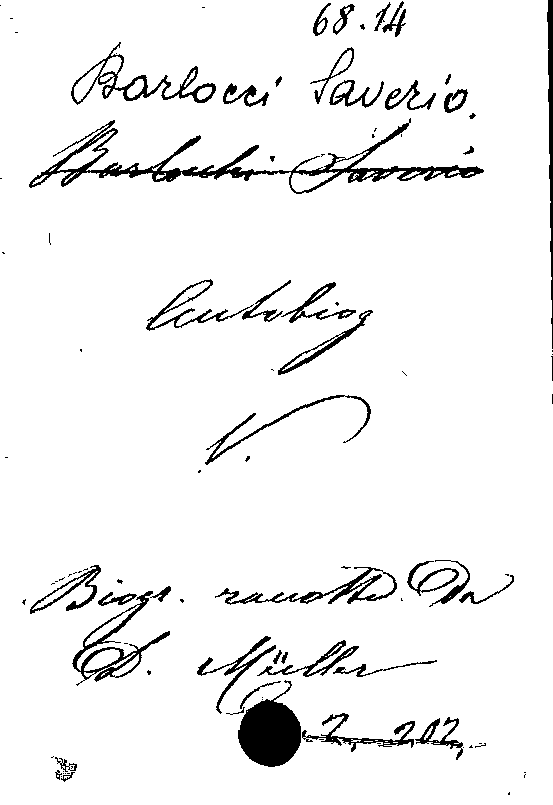 68.14
Barlocci Saverio.
Barlocchi Saverio
Autobiog
V.
Biogr. racolte Da
D. Müller
7. 202,